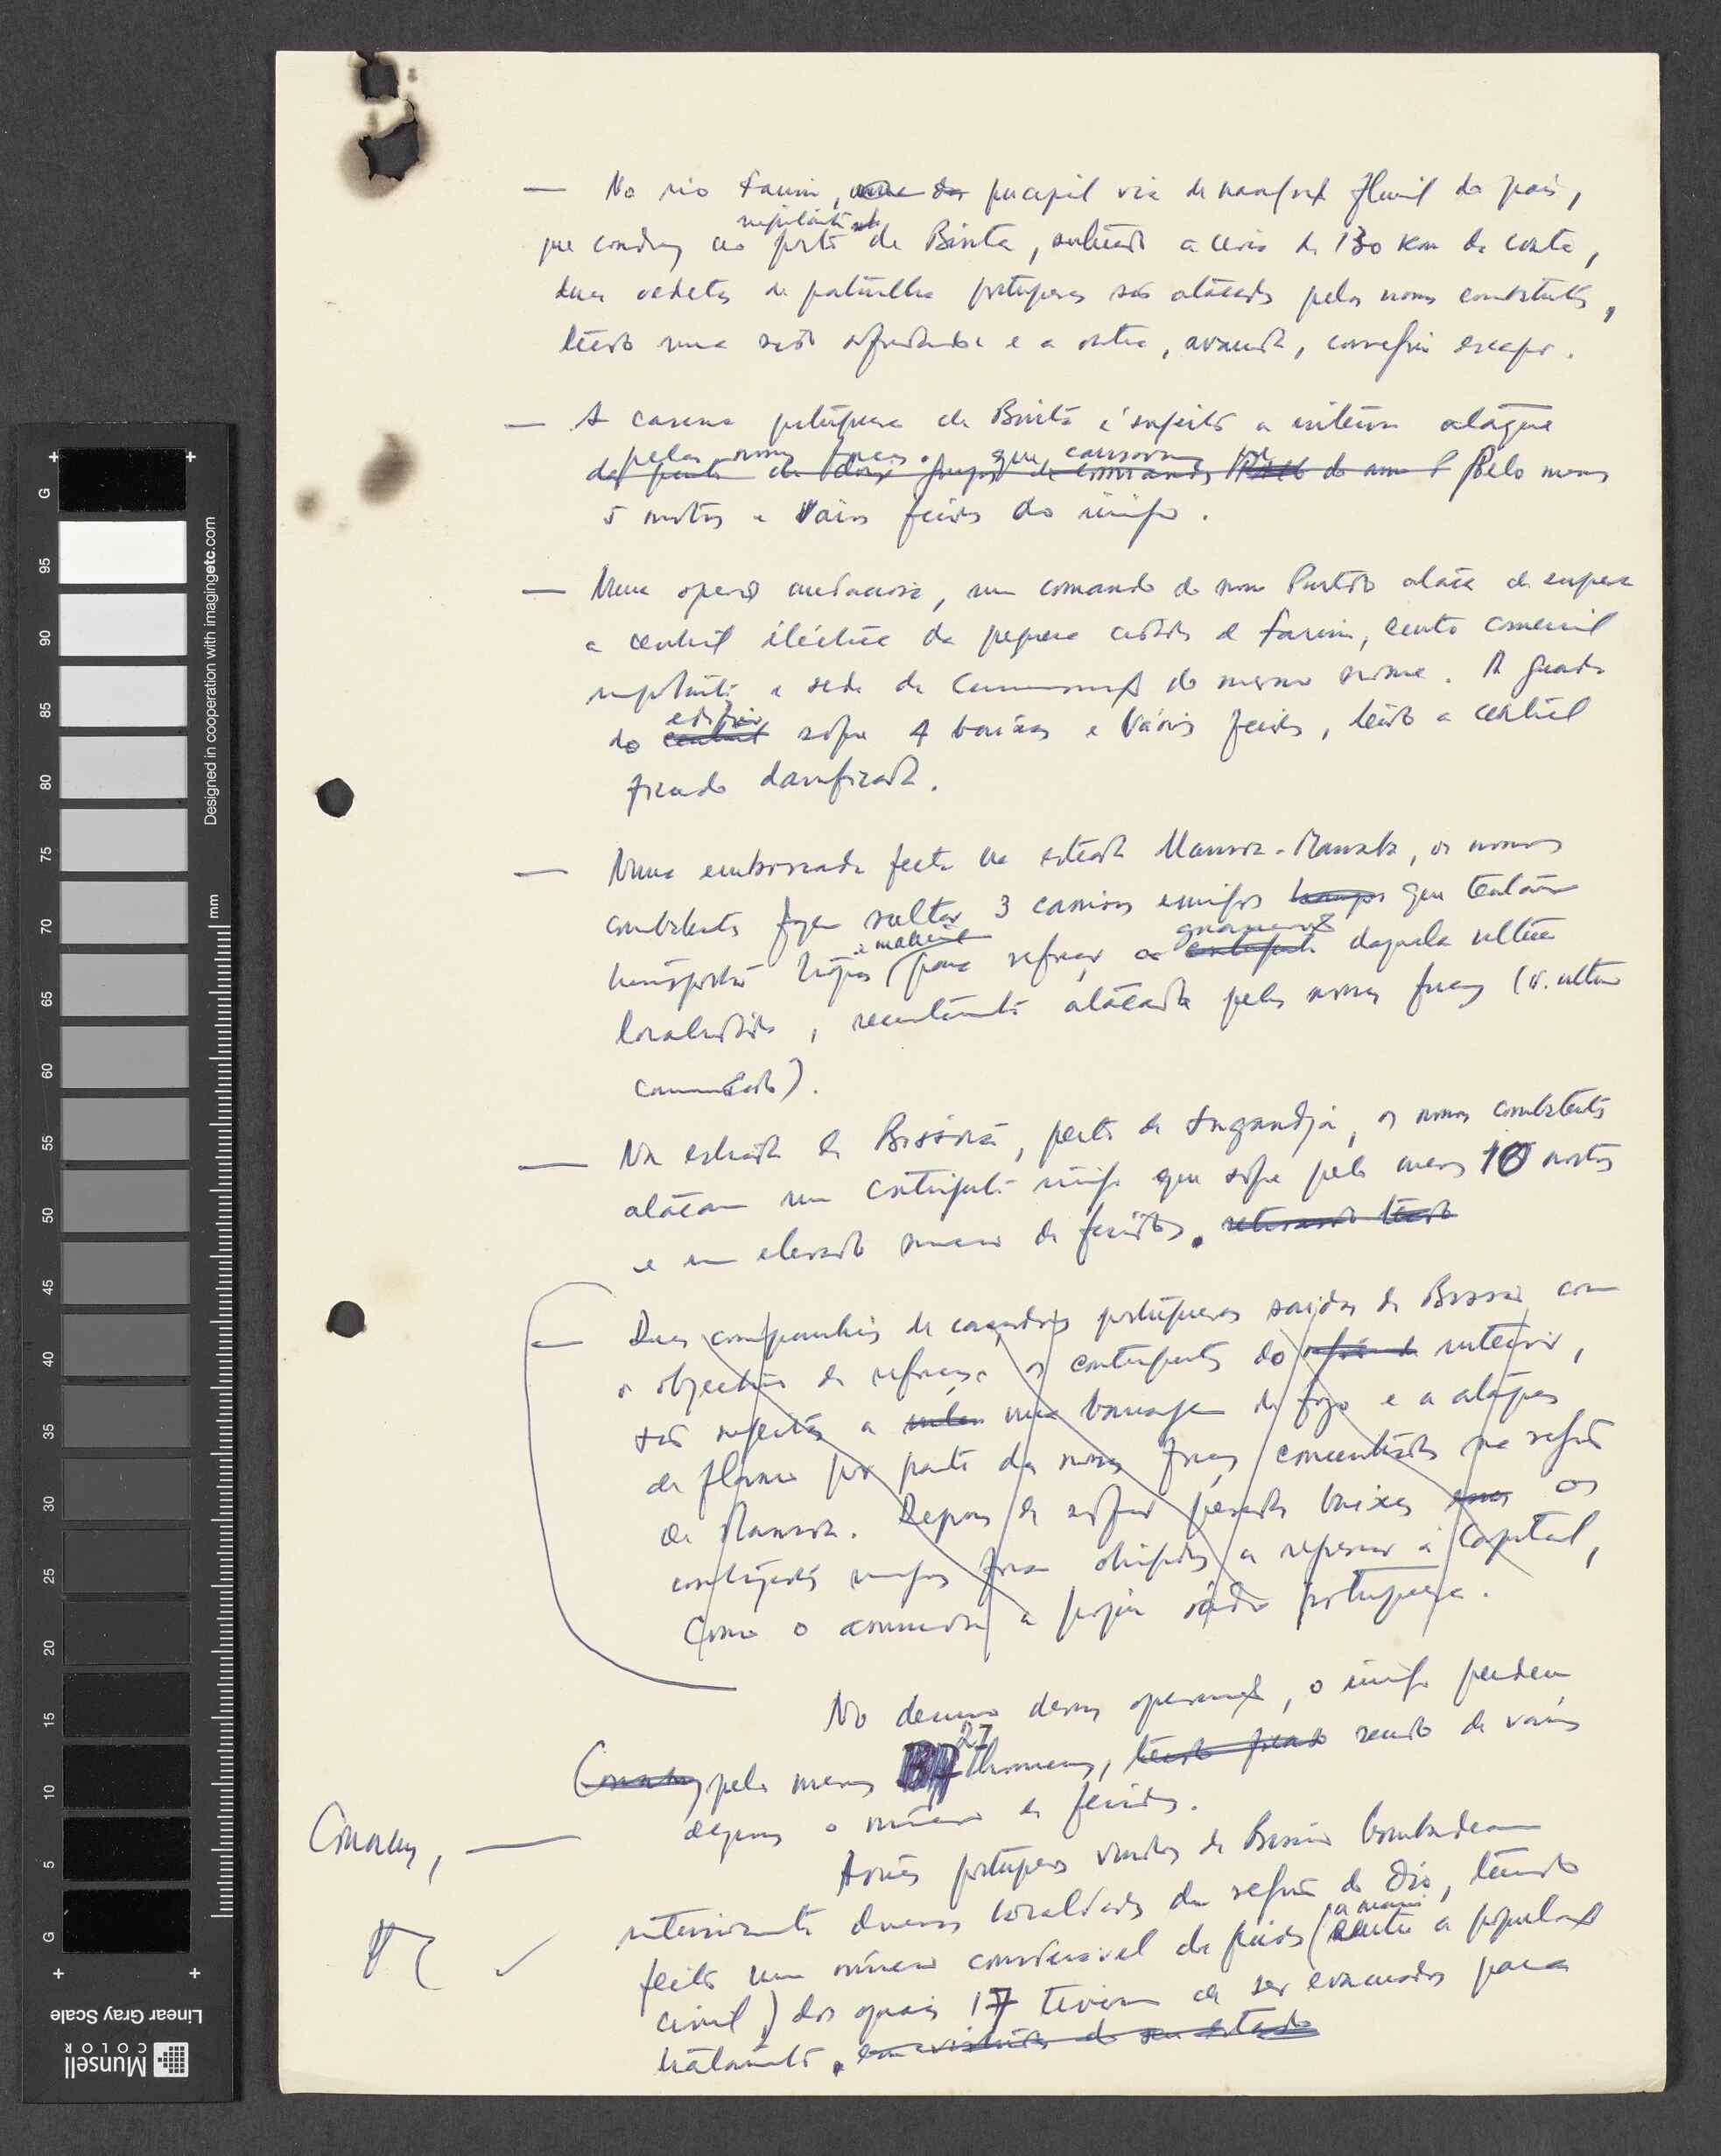 — No rio Farim, principal via de navegação fluvial do país,
importante
que conduz ao porto de Binta, situado a cerca de 130 Km da costa,
duas vedetas de patrulha portuguesas são atacadas pelos nossos combatentes,
tendo uma sido afundada e a outra, avariada, conseguiu escapar.
— A caserna portuguesa de Binta é sujeita a intenso ataque
pelas nossas forças, que causaram pelo menos
5 mortos e vários feridos ao inimigo.
— Numa operação audaciosa, um comando do nosso Partido ataca de surpresa
a central eléctrica da pequena cidade de Farim, centro comercial
importante e sede da Circunscrição do mesmo nome. A guarda
edifício
do central sofre 4 baixas e vários feridos, tendo a central
ficado danificada.
— Numa emboscada feita na estrada Mansoa-Mansaba, os nossos
combatentes fazem saltar 3 camiões inimigos que tentavam
e material guarnição
transportar tropas para reforçar a daquela última
localidade, recentemente atacada pelas nossas forças (v. último
comunicado).
— Na estrada de Bissorã, perto de Fugandjá, os nossos combatentes
atacam um contingente inimigo que sofre pelo menos 10 mortos
e um elevado número de feridos. tendo
— Duas companhias de caçadores portugueses saídas de Bissau com
o objectivo de reforçar os contingentes do interior,
são sujeitas a uma barragem de fogo e a ataques
de flanco por parte das nossas forças concentradas na região
de Mansoa. Depois de sofrer pesadas baixas os
contingentes inimigos foram obrigados a regressar à capital,
como o anunciou a própria rádio portuguesa.
No decurso dessas operações, o inimigo perdeu
27
Conakry pelo menos homens, tendo ficado sendo de várias
dezenas o número de feridos.
Conakry, — Aviões portugueses vindos de Bissau bombardeam
intensamente diversas localidades da região do Oio, tendo
a maioria
feito um número considerável de feridos (entre a população
civil) dos quais 17 tiveram de ser evacuados para
tratamento. do seu estado